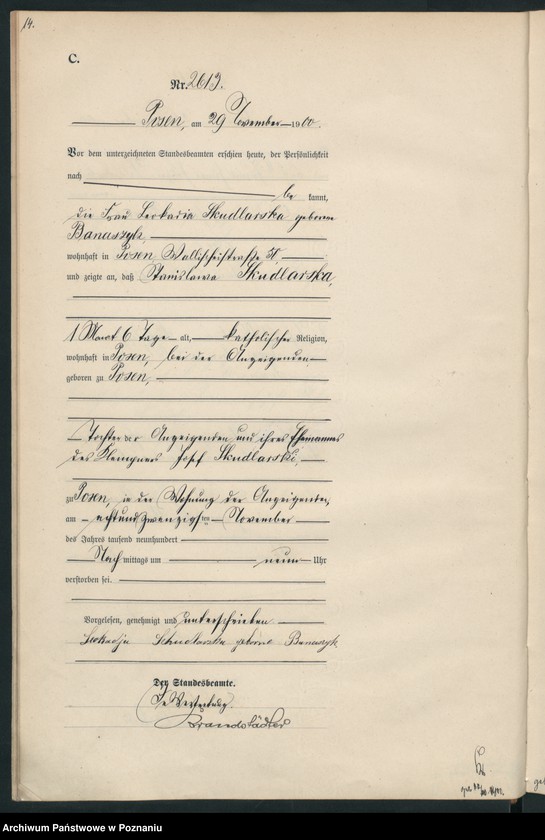 14.
C.
Nr. 2613.
Posen, am 29 November 1900.
Vor dem unterzeichneten Standesbeamten erschien heute, der Persönlichkeit
nach
be kannt,
die Frau Leokadia Skudlarska geborene
Banaszyk,
wohnhaft in Posen, Wallischeistraße
und zeigte an, daß Stanislawa Skudlarska,
1 Monat 6 Tage alt, katholischer Religion,
wohnhaft in Posen, bei der Anzeigenden
geboren zu Posen,
Tochter der Anzeigenden und ihres Ehemannes
des Klempners Josef Skudlarski,
zu Posen, in der Wohnung der Anzeigenden,
am achtundzwanzigsten November
des Jahres tausend neunhundert
Nach mittags um neun Uhr
verstorben sei.
Vorgelesen, genehmigt und unterschrieben
Leokadja Skudlarska geborne Banaszyk
Der Standesbeamte.
In Vertretung.
Brandstädter
Archiwum Państwowe w Poznaniu